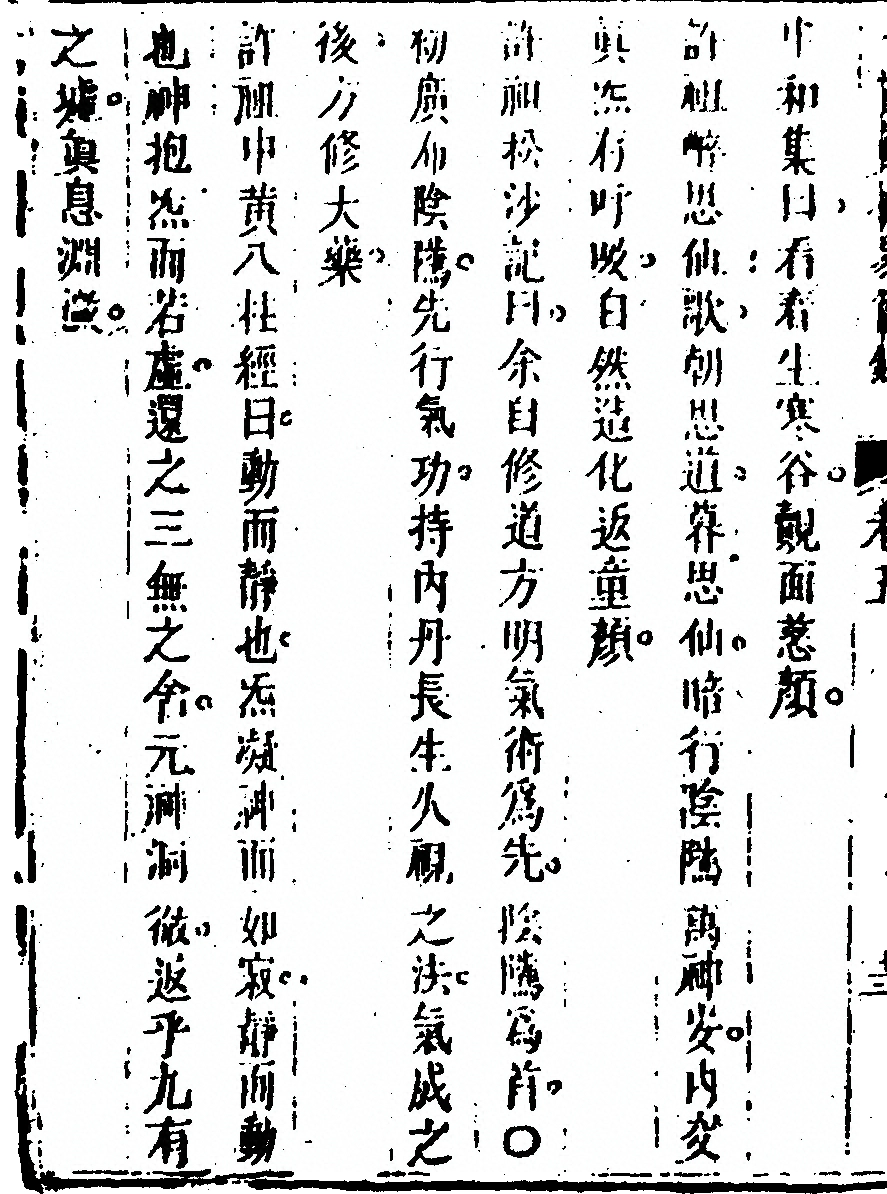 中和集曰看看生寒谷覿面惹顏
許祖醉思仙歌朝思道暮思仙暗行陰隲萬神安內交
真炁行呼吸自然造化返童顏
許祖松沙記曰余自修道方明氣術爲先陰隲爲首〇
初廣布陰隲先行氣功持內丹長生久視之法氣成之
後方修大藥
許祖中黄八柱經曰動而靜也炁凝神而如寂靜而動
也神抱炁而若虛還之三無之舍元神洞徹返乎九有
之墟真息淵澂